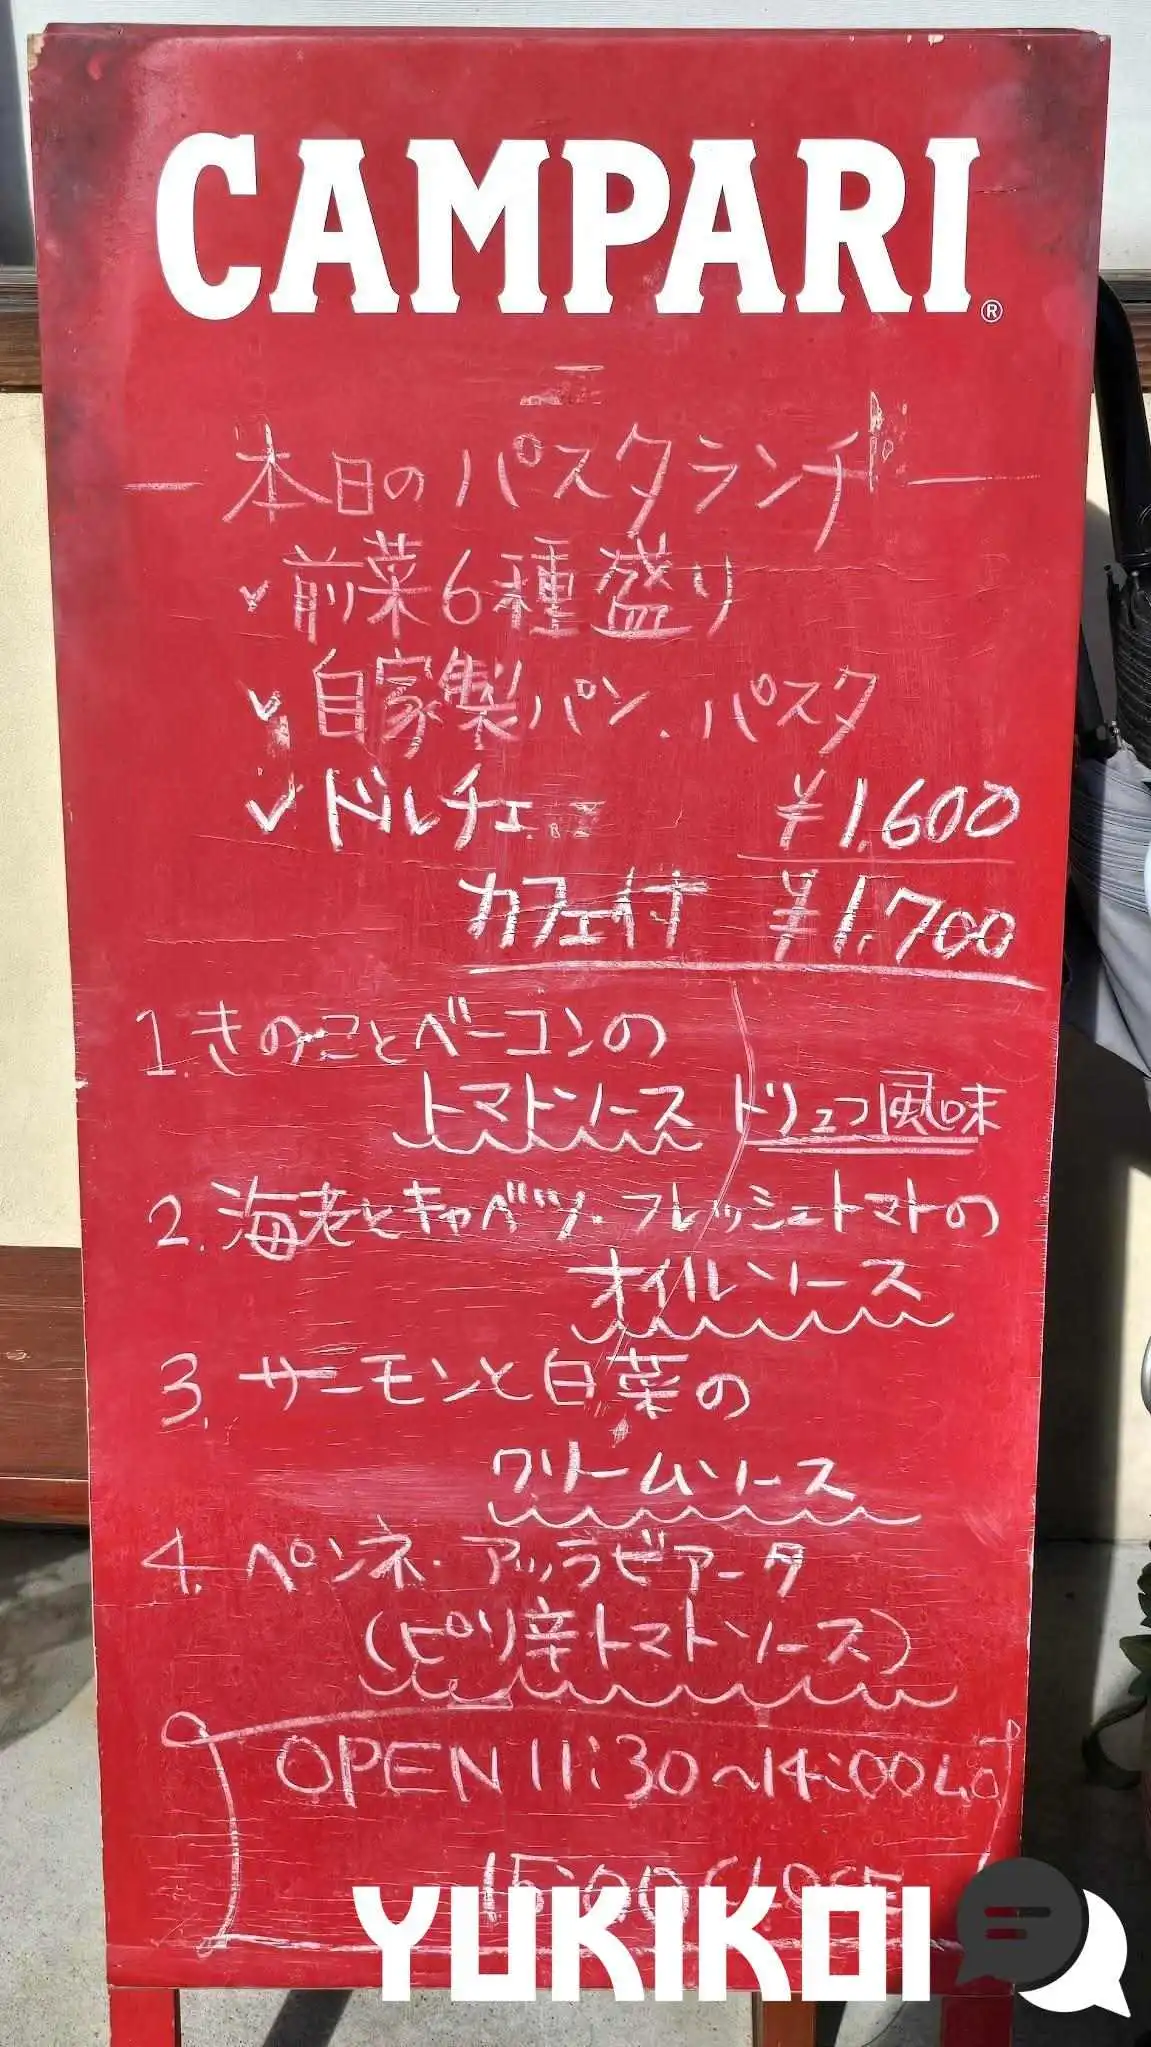 CAMPARI®
本日のパスタランチ
✓前菜6種盛り
✓自家製パン、パスタ
✓ドルチェ ¥1,600
カフェ付 ¥1,700
1.きのことベーコンの
トマトソース トリュフ風味
2.海老とキャベツ・フレッシュトマトの
オイルソース
3.サーモンと白菜の
クリームソース
4.ペンネ・アッラビアータ
(ピリ辛トマトソース)
OPEN 11:30~14:00 Lo
15:00 CLOSE
YUKIKOI